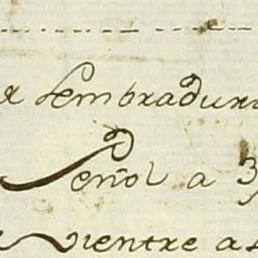 r sembradura
Señol a 3
vientre a